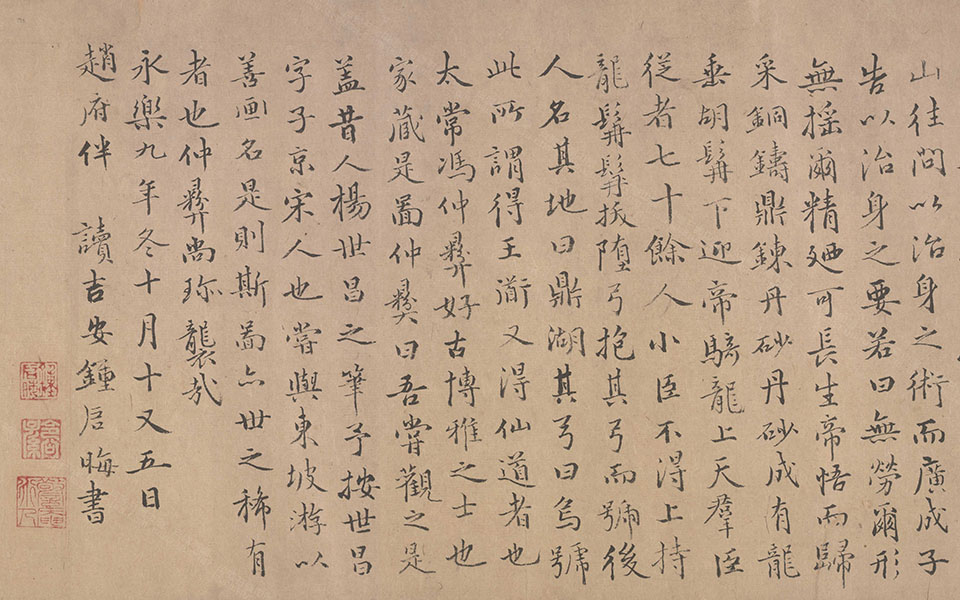 山往問以治身之術而廣成子
告以治身之要若曰無勞爾形
無揺爾精廼可長生帝悟而歸
采銅鑄鼎錬丹砂丹砂成有龍
垂胡髯下迎帝騎龍上天羣臣
從者七十餘人小臣不得上持
龍髯髯抜墮弓抱其弓而號後
人名其地曰鼎湖其弓曰烏號
此所謂得王衜又得仙道者也
太常馮仲彝好古博雅之士也
家蔵是圖仲彝曰吾嘗觀之是
盖昔人楊世昌之筆予按世昌
字子京宋人也嘗與東坡游以
善画名是則斯圖亦世之稀有
者也仲彝尚珎襲哉
永樂九年冬十月十又五日
趙府伴 讀吉安鍾启晦書